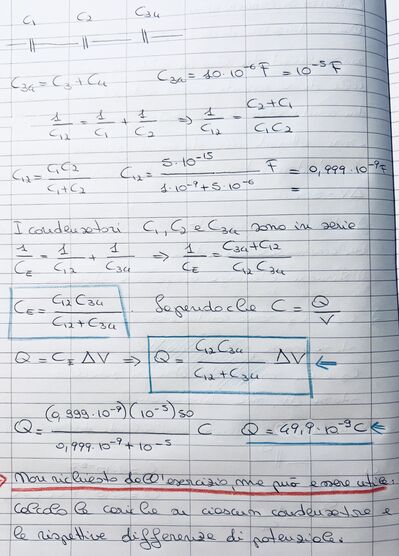 C₁ C₂ C₃₄
C₃₄ = C₃ + C₄ C₃₄ = 10·10⁻⁶ F = 10⁻⁵ F
1/C₁₂ = 1/C₁ + 1/C₂ ⇒ 1/C₁₂ = (C₂ + C₁)/(C₁C₂)
C₁₂ = C₁C₂/(C₁ + C₂) C₁₂ = 5·10⁻¹⁵/(1·10⁻⁹ + 5·10⁻⁶) F = 0,999·10⁻⁹ F
=
I condensatori C₁, C₂ e C₃₄ sono in serie
1/C_E = 1/C₁₂ + 1/C₃₄ ⇒ 1/C_E = (C₃₄ + C₁₂)/(C₁₂ C₃₄)
C_E = C₁₂ C₃₄/(C₁₂ + C₃₄) . Sapendo che C = Q/V
Q = C_E ΔV ⇒ Q = C₁₂ C₃₄/(C₁₂ + C₃₄) ΔV ⇐
Q = (0,999·10⁻⁹)(10⁻⁵)50/(0,999·10⁻⁹ + 10⁻⁵) C Q = 49,9·10⁻⁹ C ⇐
→ Non richiesto dall'esercizio, ma può essere utile:
calcolo le cariche su ciascun condensatore e
le rispettive differenze di potenziale.